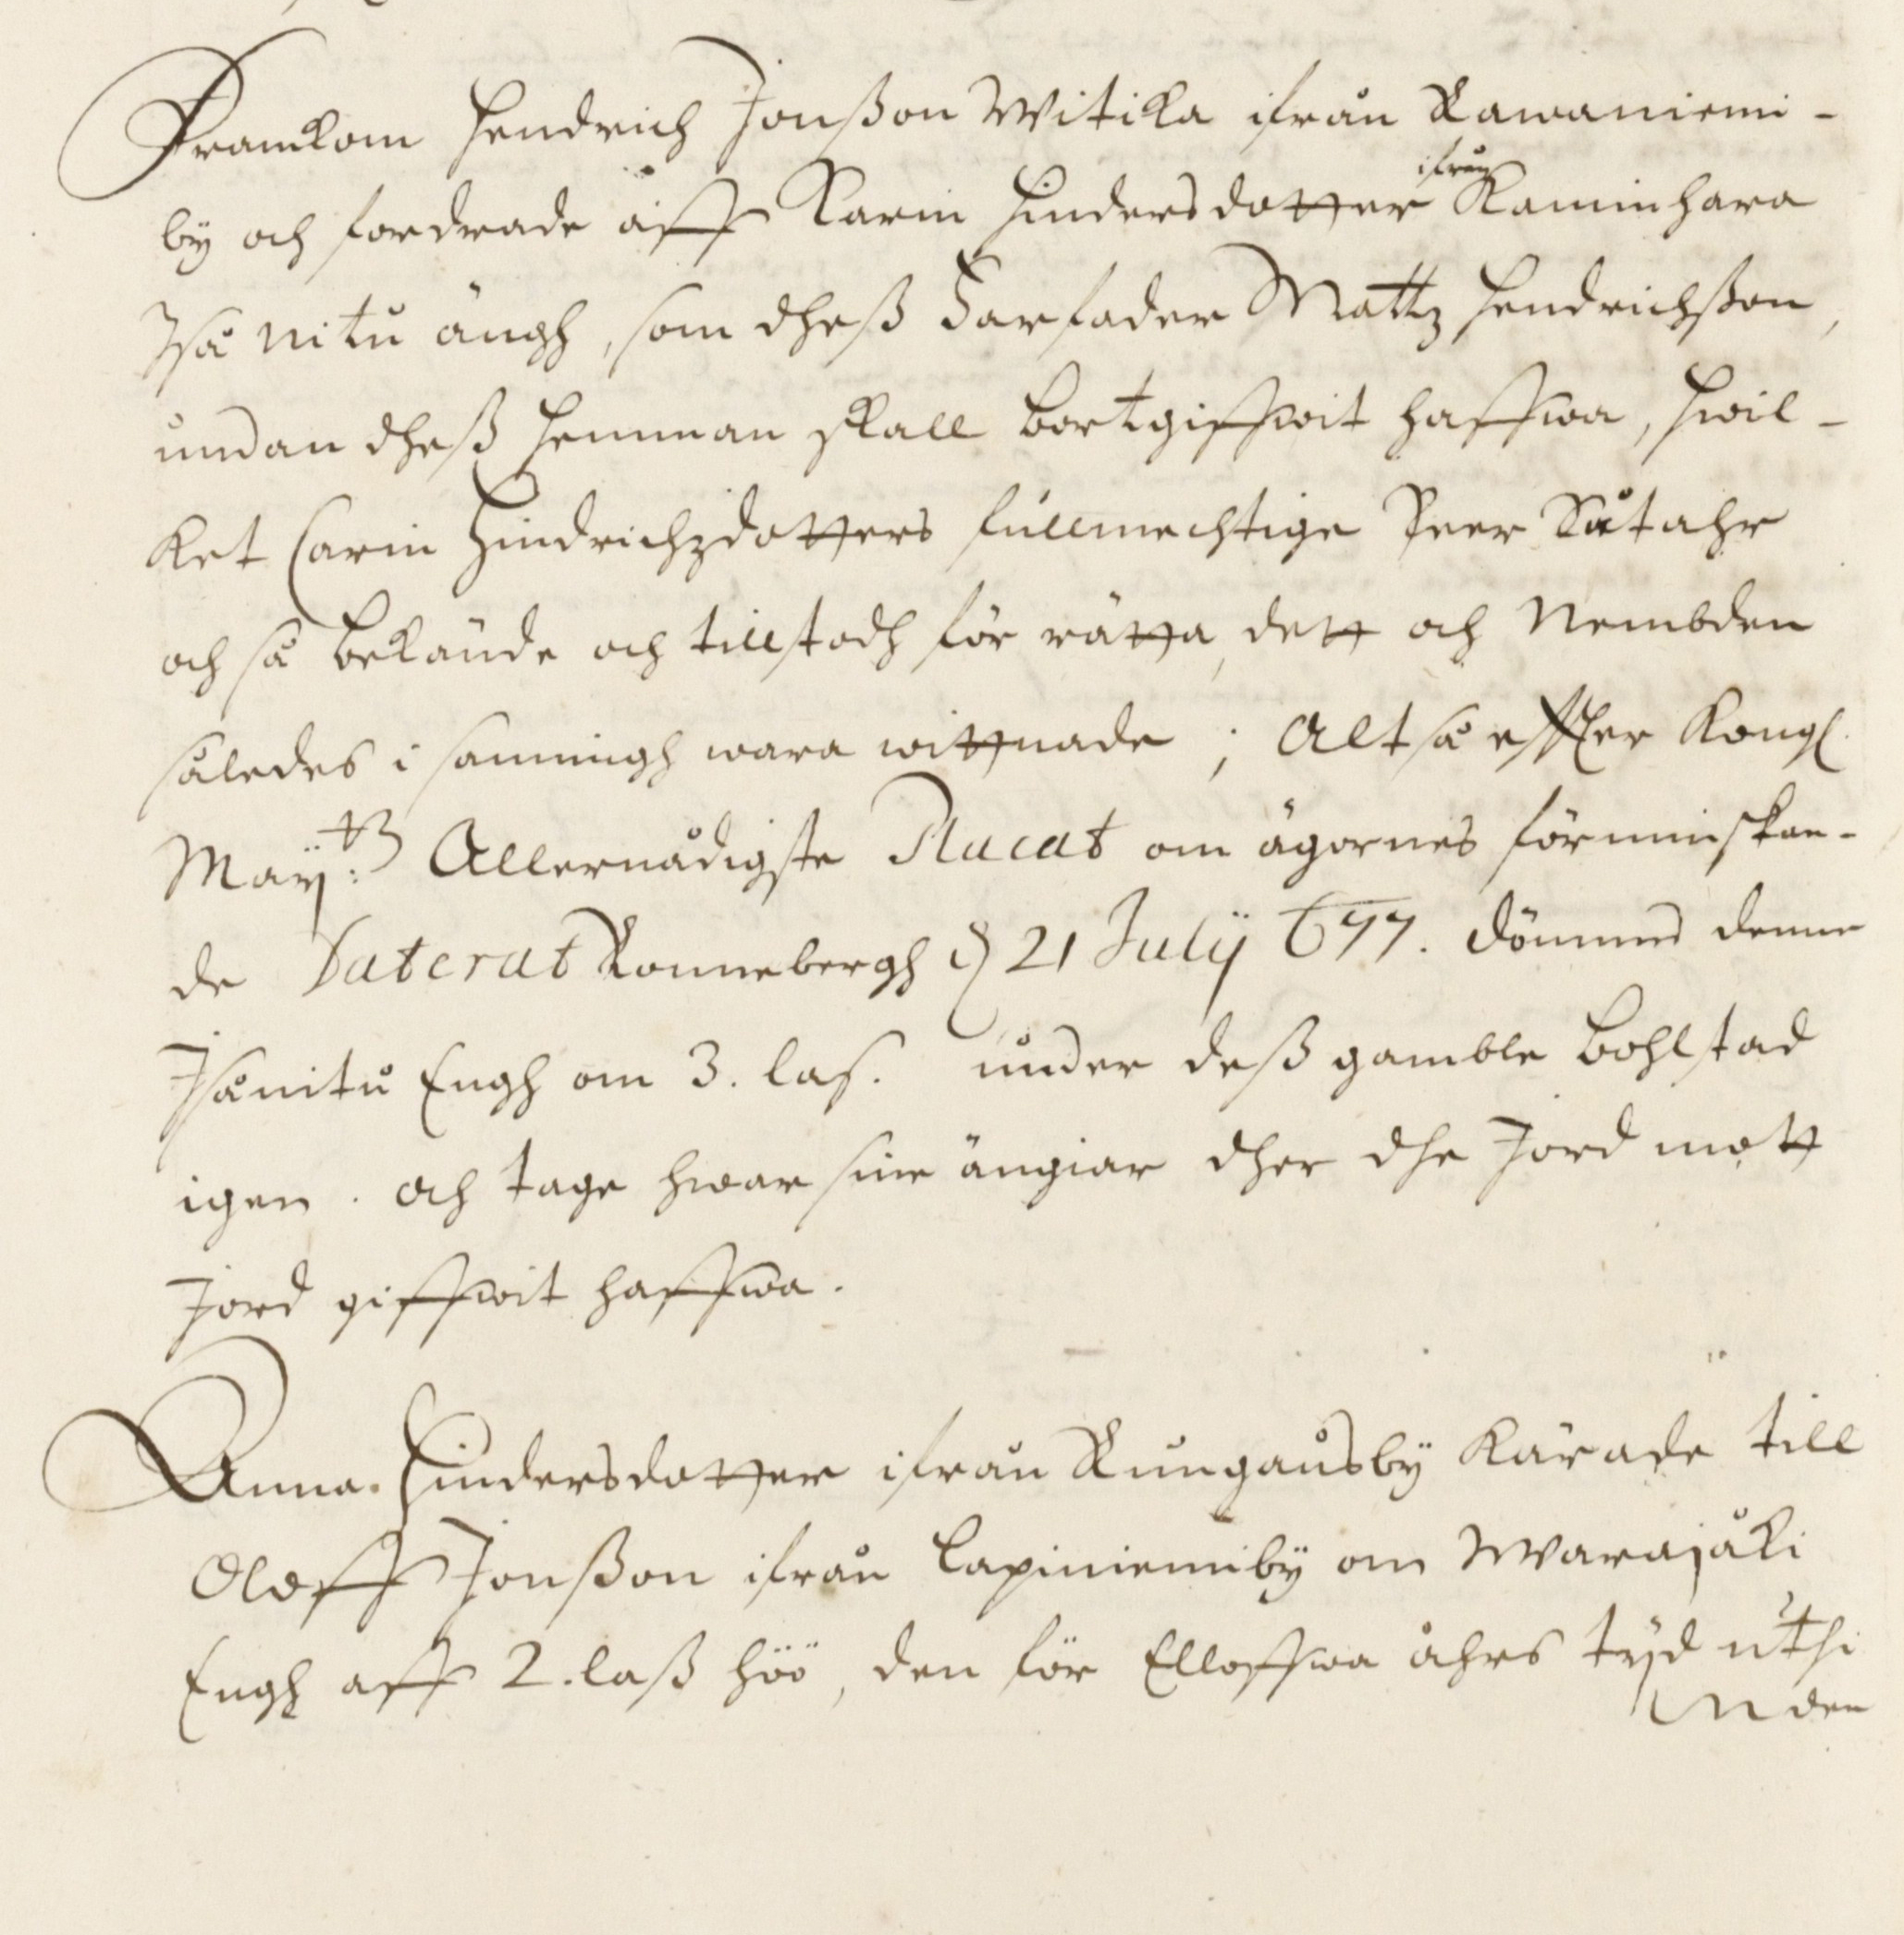 Framkom Hendrich Jonßon Witika ifrån Rawaniemi-
by och fordrade aff Karin Hindersdotter ifrån Kaminhara
Isä nitu ängh, som dheß Farfader Mattz Hendrichßon,
undan dheß Hemman skall bortgiffwit haffwa, hwil-
ket Carin Hindrichzdotters fullmechtige Peer Sutahr
och så bekände och tillstodh för rätta, dett och Nembden
således i sanningh wara wittnade; Altså effter Kongl.
Maÿ:tz Allernådigste Placat om ägornes förminskan-
de Daterat Ronnebergh d 21 Julÿ 677. dömmes denne
Isänitu Engh om 3. las. under deß gamble Bohlstad
igen. och tage hwar sine ängiar dher dhe Jord mott
Jord giffwit haffwa.
Anna Hindersdotter ifrån Kungansbÿ kärade till
Oloff Jonßon ifrån Lapiniemibÿ om Warajåki
Engh aff 2. laß höö, den för Elloffwa åhrs tÿd uthi
Unden